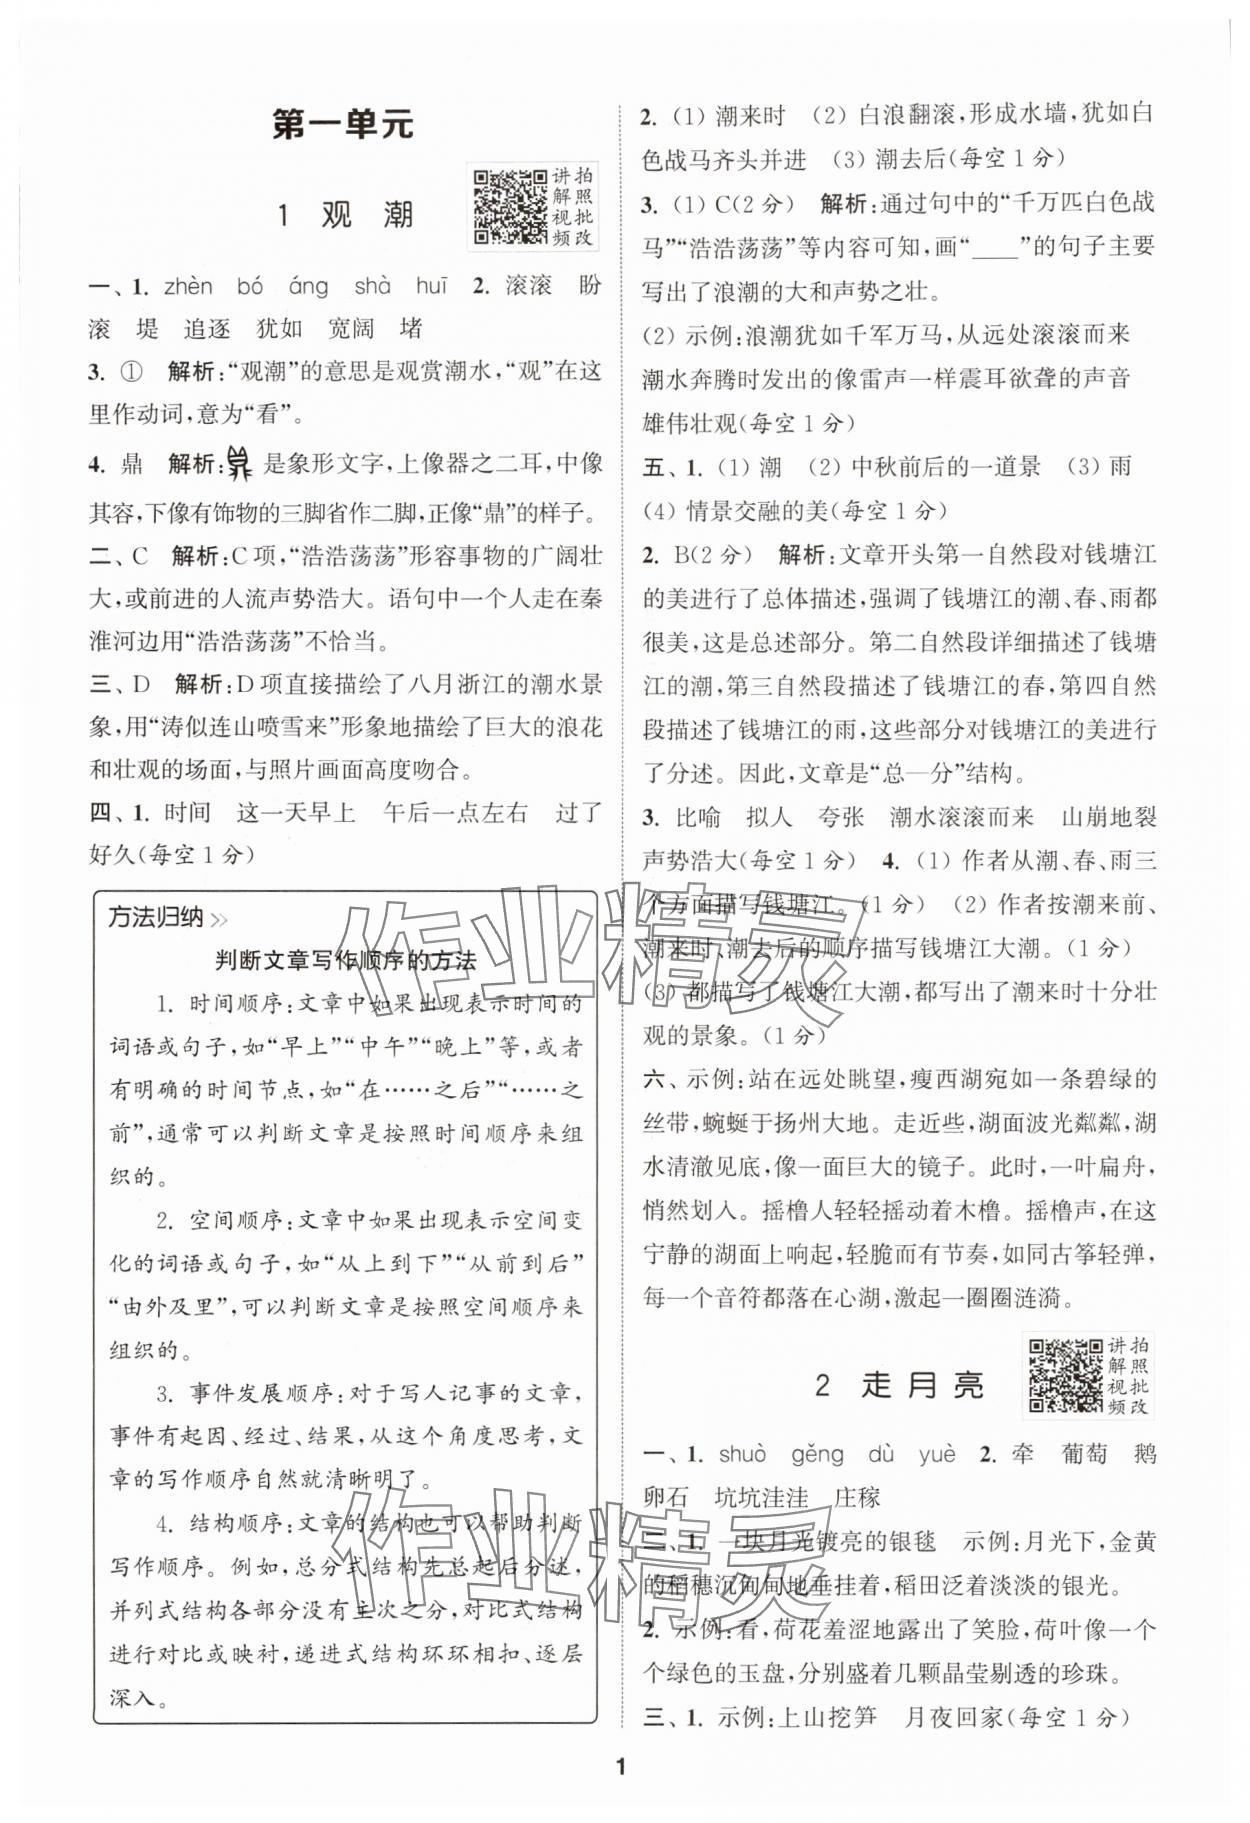 第一单元
1 观 潮
讲拍
解照
视批
频改
一、1. zhèn bó áng shà huī 2. 滚滚 盼
滚 堤 追逐 犹如 宽阔 堵
3. ① 解析:“观潮”的意思是观赏潮水,“观”在这
里作动词,意为“看”。
4. 鼎 解析: 是象形文字,上像器之二耳,中像
其容,下像有饰物的三脚省作二脚,正像“鼎”的样子。
二、C 解析:C项,“浩浩荡荡”形容事物的广阔壮
大,或前进的人流声势浩大。语句中一个人走在秦
淮河边用“浩浩荡荡”不恰当。
三、D 解析:D项直接描绘了八月浙江的潮水景
象,用“涛似连山喷雪来”形象地描绘了巨大的浪花
和壮观的场面,与照片画面高度吻合。
四、1. 时间 这一天早上 午后一点左右 过了
好久(每空1分)
方法归纳>>
判断文章写作顺序的方法
1. 时间顺序:文章中如果出现表示时间的
词语或句子,如“早上”“中午”“晚上”等,或者
有明确的时间节点,如“在……之后”“……之
前”,通常可以判断文章是按照时间顺序来组
织的。
2. 空间顺序:文章中如果出现表示空间变
化的词语或句子,如“从上到下”“从前到后”
“由外及里”,可以判断文章是按照空间顺序来
组织的。
3. 事件发展顺序:对于写人记事的文章,
事件有起因、经过、结果,从这个角度思考,文
章的写作顺序自然就清晰明了。
4. 结构顺序:文章的结构也可以帮助判断
写作顺序。例如,总分式结构先总起后分述,
并列式结构各部分没有主次之分,对比式结构
进行对比或映衬,递进式结构环环相扣、逐层
深入。
2. (1) 潮来时 (2) 白浪翻滚,形成水墙,犹如白
色战马齐头并进 (3) 潮去后(每空1分)
3. (1) C(2分) 解析:通过句中的“千万匹白色战
马”“浩浩荡荡”等内容可知,画“____”的句子主要
写出了浪潮的大和声势之壮。
(2) 示例:浪潮犹如千军万马,从远处滚滚而来
潮水奔腾时发出的像雷声一样震耳欲聋的声音
雄伟壮观(每空1分)
五、1. (1) 潮 (2) 中秋前后的一道景 (3) 雨
(4) 情景交融的美(每空1分)
2. B(2分) 解析:文章开头第一自然段对钱塘江
的美进行了总体描述,强调了钱塘江的潮、春、雨都
很美,这是总述部分。第二自然段详细描述了钱塘
江的潮,第三自然段描述了钱塘江的春,第四自然
段描述了钱塘江的雨,这些部分对钱塘江的美进行
了分述。因此,文章是“总—分”结构。
3. 比喻 拟人 夸张 潮水滚滚而来 山崩地裂
声势浩大(每空1分) 4. (1) 作者从潮、春、雨三
个方面描写钱塘江。(1分) (2) 作者按潮来前、
潮来时、潮去后的顺序描写钱塘江大潮。(1分)
(3) 都描写了钱塘江大潮,都写出了潮来时十分壮
观的景象。(1分)
六、示例:站在远处眺望,瘦西湖宛如一条碧绿的
丝带,蜿蜒于扬州大地。走近些,湖面波光粼粼,湖
水清澈见底,像一面巨大的镜子。此时,一叶扁舟,
悄然划入。摇橹人轻轻摇动着木橹。摇橹声,在这
宁静的湖面上响起,轻脆而有节奏,如同古筝轻弹,
每一个音符都落在心湖,激起一圈圈涟漪。
2 走月亮
讲拍
解照
视批
频改
一、1. shuò gěng dù yuè 2. 牵 葡萄 鹅
卵石 坑坑洼洼 庄稼
二、1. 一块月光镀亮的银毯 示例:月光下,金黄
的稻穗沉甸甸地垂挂着,稻田泛着淡淡的银光。
2. 示例:看,荷花羞涩地露出了笑脸,荷叶像一个
个绿色的玉盘,分别盛着几颗晶莹剔透的珍珠。
三、1. 示例:上山挖笋 月夜回家(每空1分)
作业精灵
作业精灵
1